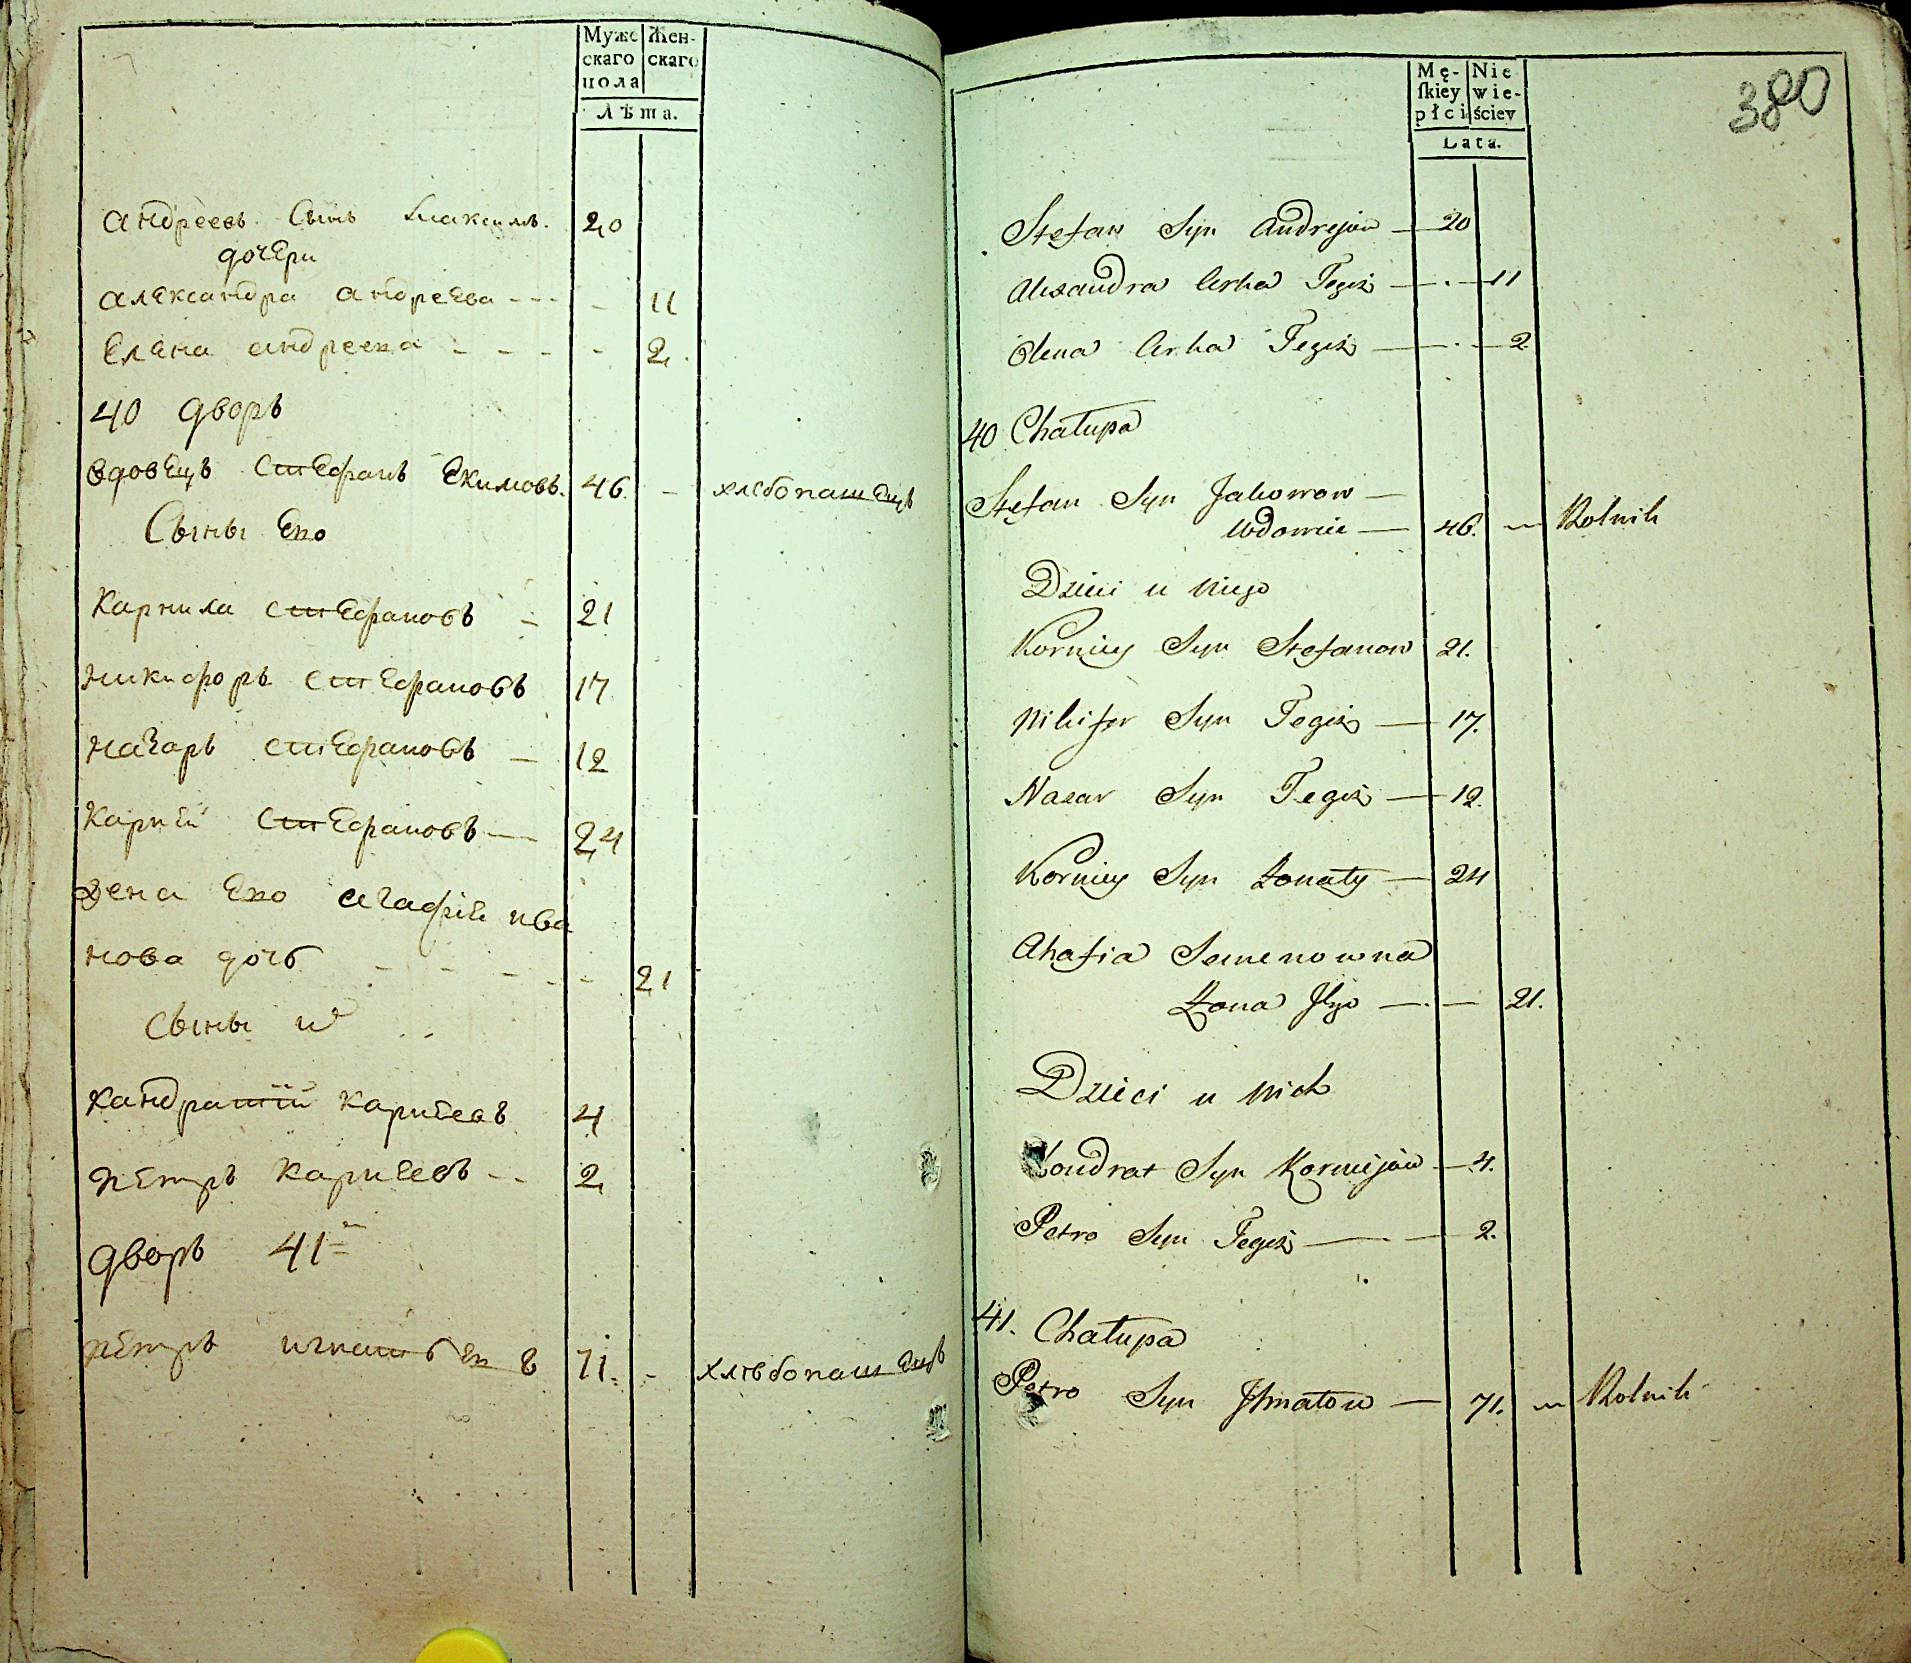 Мужс
скаго
пола
Жен-
скаго
Лѣта.
Андреевъ Сынъ Максимъ. 20
дочери
Александра Андреева - - - - 11
Елена андреева - - - - 2.
40 дворъ
вдовецъ Стефанъ Екимовъ. 46. - хлѣбопашецъ
Сыны Ево
Карнила стефановъ - 21
Никифоръ стефановъ 17
Назаръ стефановъ - 12
Карнѣй Стефановъ - 24
Жена Ево агафіѣ ива
нова дочь - - - - - - 21
Сыны и^х
Кандратій Карнѣевъ 4
Пѣтръ Карнѣевъ - - 2
дворъ 41^й
Пѣтръ игнатьевъ 71. - хлѣбопашецъ
Mę-
ſkiey
płci
Nie
wie-
ściey
Lata.
380
Stefan Syn Andrejów — 20
Alexandra Crka Tegiż — . — 11
Olena Crka Tegiż — . — 2
40 Chałupa
Stefan Syn Jakowow —
Wdowiec — 46. — Rolnik
Dzieci u niego
Korniey Syn Stefanow 21.
Nikifor Syn Tegiż — 17.
Nazar Syn Tegiż — 12.
Korniey Syn Żonaty — 24
Ahafia Semenowna
Żona Jego — . — 21.
Dzieci u nich
Kondrat Syn Kornijów — 4.
Petro Syn Tegiż — . — 2.
41. Chałupa
Petro Syn Jhnatow — 71. — Rolnik